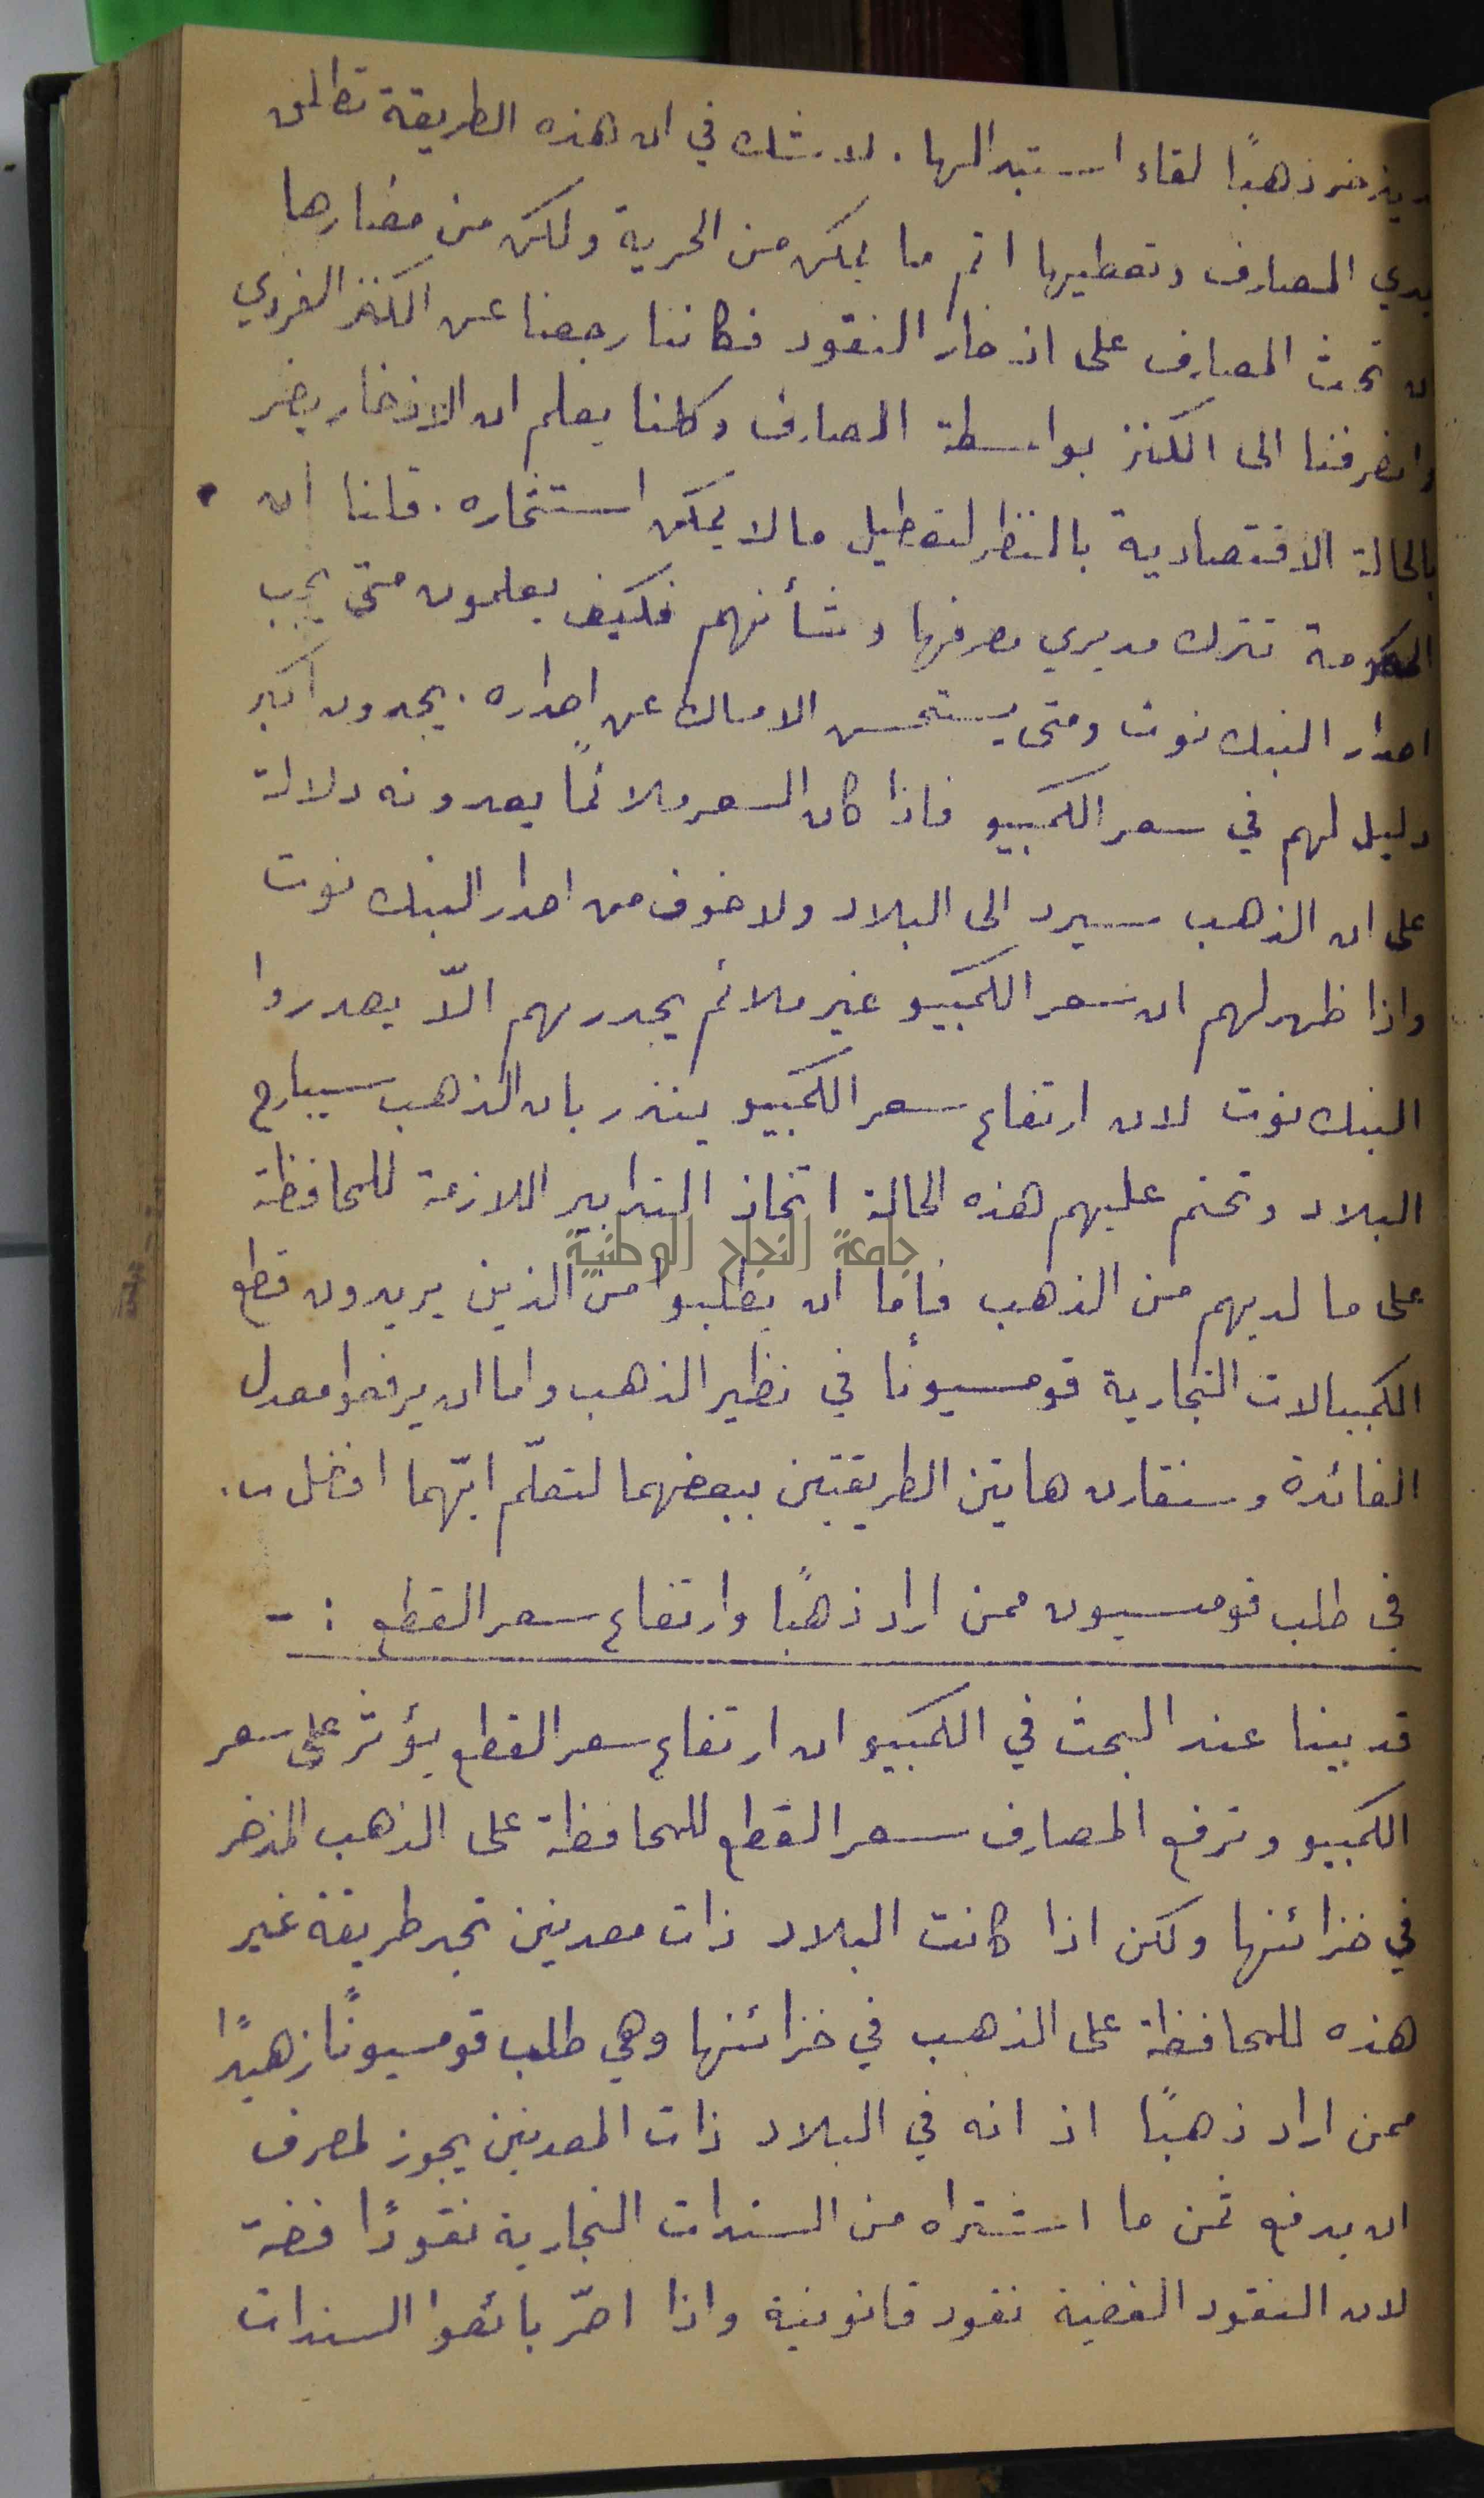 يذخر ذهبًا لقاء استبدالها . لا شك في ان هذه الطريقة تطلق
يدي المصارف وتعطيها اتم ما يمكن من الحرية ولكن من مضارها
ان تحث المصارف على اذخار النقود فكاننا رجعنا عن الكنز الفردي
وانصرفنا الى الكنز بواسطة المصارف وكلنا يعلم ان الاذخار يضر
بالحالة الاقتصادية بالنظر لتعطيل مالا يمكن استثماره . قلنا ان
الحكومة تترك مديري مصرفها وشأنهم فكيف يعلمون متى يجب
اصدار البنك نوت ومتى يستحسن الامساك عن اصداره . يجدون اكبر
دليل لهم في سعر الكمبيو فاذا كان السعر ملائمًا يعدونه دلالة
على ان الذهب سيرد الى البلاد ولا خوف من اصدار البنك نوت
واذا ظهر لهم ان سعر الكمبيو غير ملائم يجدر بهم الّا يصدروا
البنك نوت لان ارتفاع سعر الكمبيو ينذر بان الذهب سيبارح
البلاد وتحتم عليهم هذه الحالة اتخاذ التدابير اللازمة للمحافظة
على ما لديهم من الذهب فأما ان يطلبوا من الذين يريدون قطع
الكمبيالات التجارية قومسيونًا في نظير الذهب واما ان يرفعوا معدل
الفائدة وسنقارن هاتين الطريقتين ببعضهما لتعلّم ايّهما افضل .
في طلب قومسيون ممن اراد ذهبًا وارتفاع سعر القطع : -
قد بينا عند البحث في الكمبيو ان ارتفاع سعر القطع يؤثر على سعر
الكمبيو وترفع المصارف سعر القطع للمحافظة على الذهب المذخر
في خزائنها ولكن اذا كانت البلاد ذات معدنين تجد طريقة غير
هذه للمحافظة على الذهب في خزائنها وهي طلب قومسيونًا زهيدًا
ممن اراد ذهبًا اذ انه في البلاد ذات المعدنين يجوز لمصرف
ان يدفع ثمن ما اشتراه من السندات التجارية نقودًا فضة
لان النقود الفضية نقود قانونية واذا اصّر بائعوا السندات
جامعة النجاح الوطنية